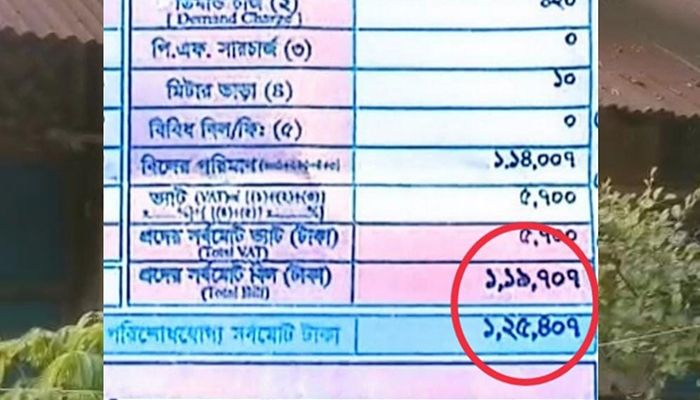 ডিমান্ড চার্জ (২)
[ Demand Charge ]
পি.এফ. সারচার্জ (৩)
০
মিটার ভাড়া (৪)
১০
বিবিধ বিল/ফিঃ (৫)
০
বিলের পরিমাণ
১,১৪,০০৭
ভ্যাট (VAT)
৫,৭০০
প্রদেয় সর্বমোট ভ্যাট (টাকা)
৫,৭০০
(Total VAT)
প্রদেয় সর্বমোট বিল (টাকা)
১,১৯,৭০৭
(Total Bill)
পরিশোধযোগ্য সর্বমোট টাকা
১,২৫,৪০৭